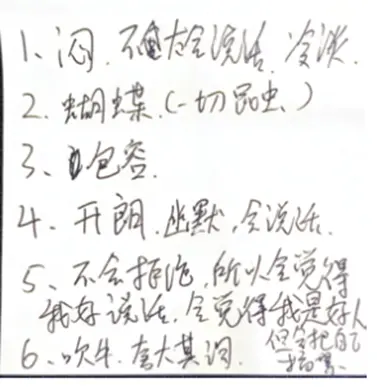 1、闷、不太会说话、冷淡.
2、蝴蝶.(一切昆虫)
3、包容.
4、开朗.幽默.会说话.
5、不会拒绝,所以会觉得
我好说话.会觉得我是好人
6、吹牛.夸大其词. 但会把自己